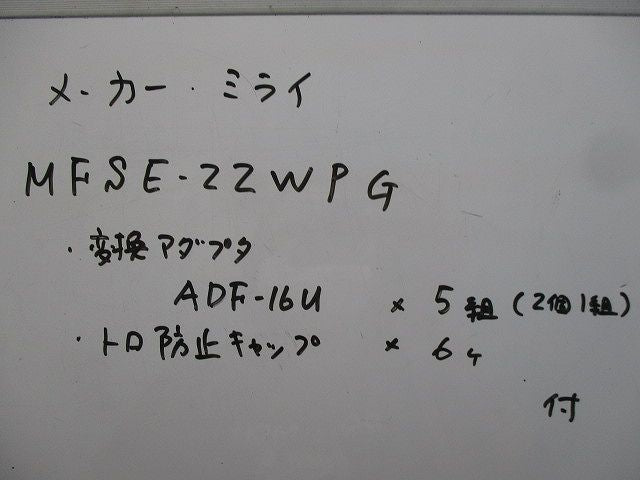 メーカー・ミライ
MFSE-22WPG
・変換アダプタ
ADF-16U × 5組(2個1組)
・トロ防止キャップ × 6ケ
付